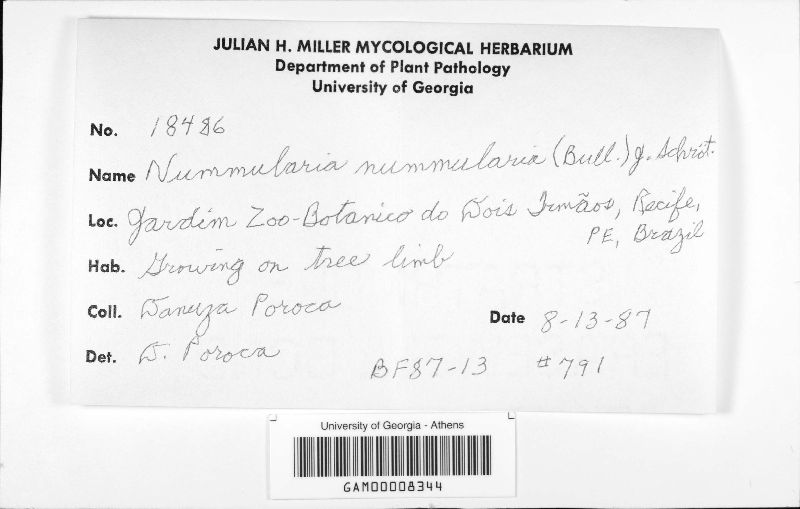 JULIAN H. MILLER MYCOLOGICAL HERBARIUM
Department of Plant Pathology
University of Georgia
No. 18486
Name Nummularia nummularia (Bull.) J. Schröt.
Loc. Jardim Zoo-Botanico do Dois Irmãos, Recife,
PE, Brazil
Hab. Growing on tree limb
Coll. Daneyza Poroca
Date 8-13-87
Det. D. Poroca
BF87-13 #791
University of Georgia - Athens
GAM00008344